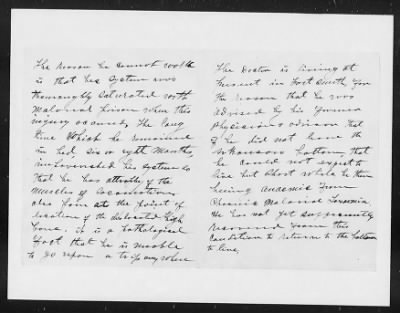 The reason he cannot walk
is that his system was
thoroughly saturated with
malarial poison when this
injury occurred, the long
time which he remained
in bed six or eight months,
his system so
that he has atrophy of the
muscles of locomotion,
also pain at the point of
location of the dislocated thigh
bone. it is a Pathological
fact that he is unable
to go upon a trip anywhere
The Doctor is living at
present in Fort Smith, for
the reason that he was
advised by his former
Physicians advisor that
if he did not leave the
Arkansas bottom, that
he could not expect to
live but short while he then
being anaemic from
Chronic Malarial Toxemia
He has not yet sufficiently
recovered from this
condition to return to the bottom
to live,